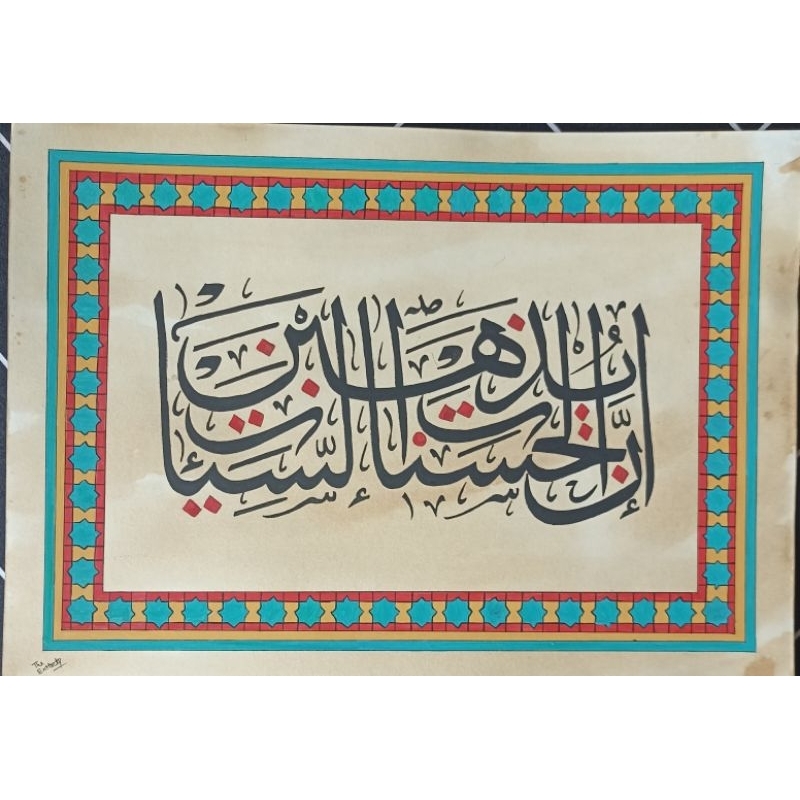 إنَّ الحسنات يُذهبن السيئات